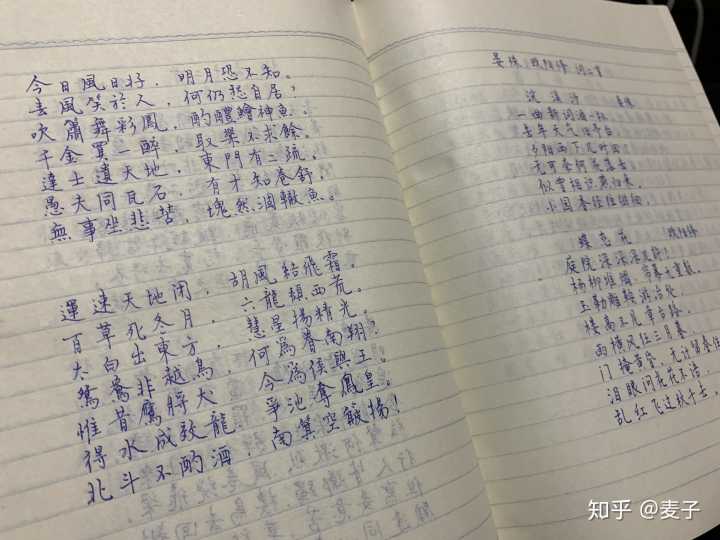 今日風日好，明月恐不知。
春風笑於人，何仍愁自居，
吹簫舞彩鳳，酌醴鱠神魚。
千金買一醉，取樂不求餘。
達士遺天地，東門有二疏。
愚夫同瓦石，有才知卷舒。
無事坐悲苦，塊然涸轍魚。
運速天地閉，胡風結飛霜。
百草死冬月，六龍頹西荒。
太白出東方，慧星揚精光。
鴛鴦非越鳥，何為眷南翔？
惟昔鷹將犬，今為侯與王。
得水成蛟龍，爭池奪鳳皇。
北斗不酌酒，南箕空簸揚！
晏殊 欧阳修 词二首
浣溪沙 晏殊
一曲新词酒一杯
去年天气旧亭台
夕阳西下几时回
无可奈何花落去
似曾相识燕归来
小园香径独徘徊
蝶恋花 欧阳修
庭院深深深几许！
杨柳堆烟，帘幕无重数。
玉勒雕鞍游冶处
楼高不见章台路，
雨横风狂三月暮，
门掩黄昏，无计留春住
泪眼问花花不语，
乱红飞过秋千去。
知乎 @麦子